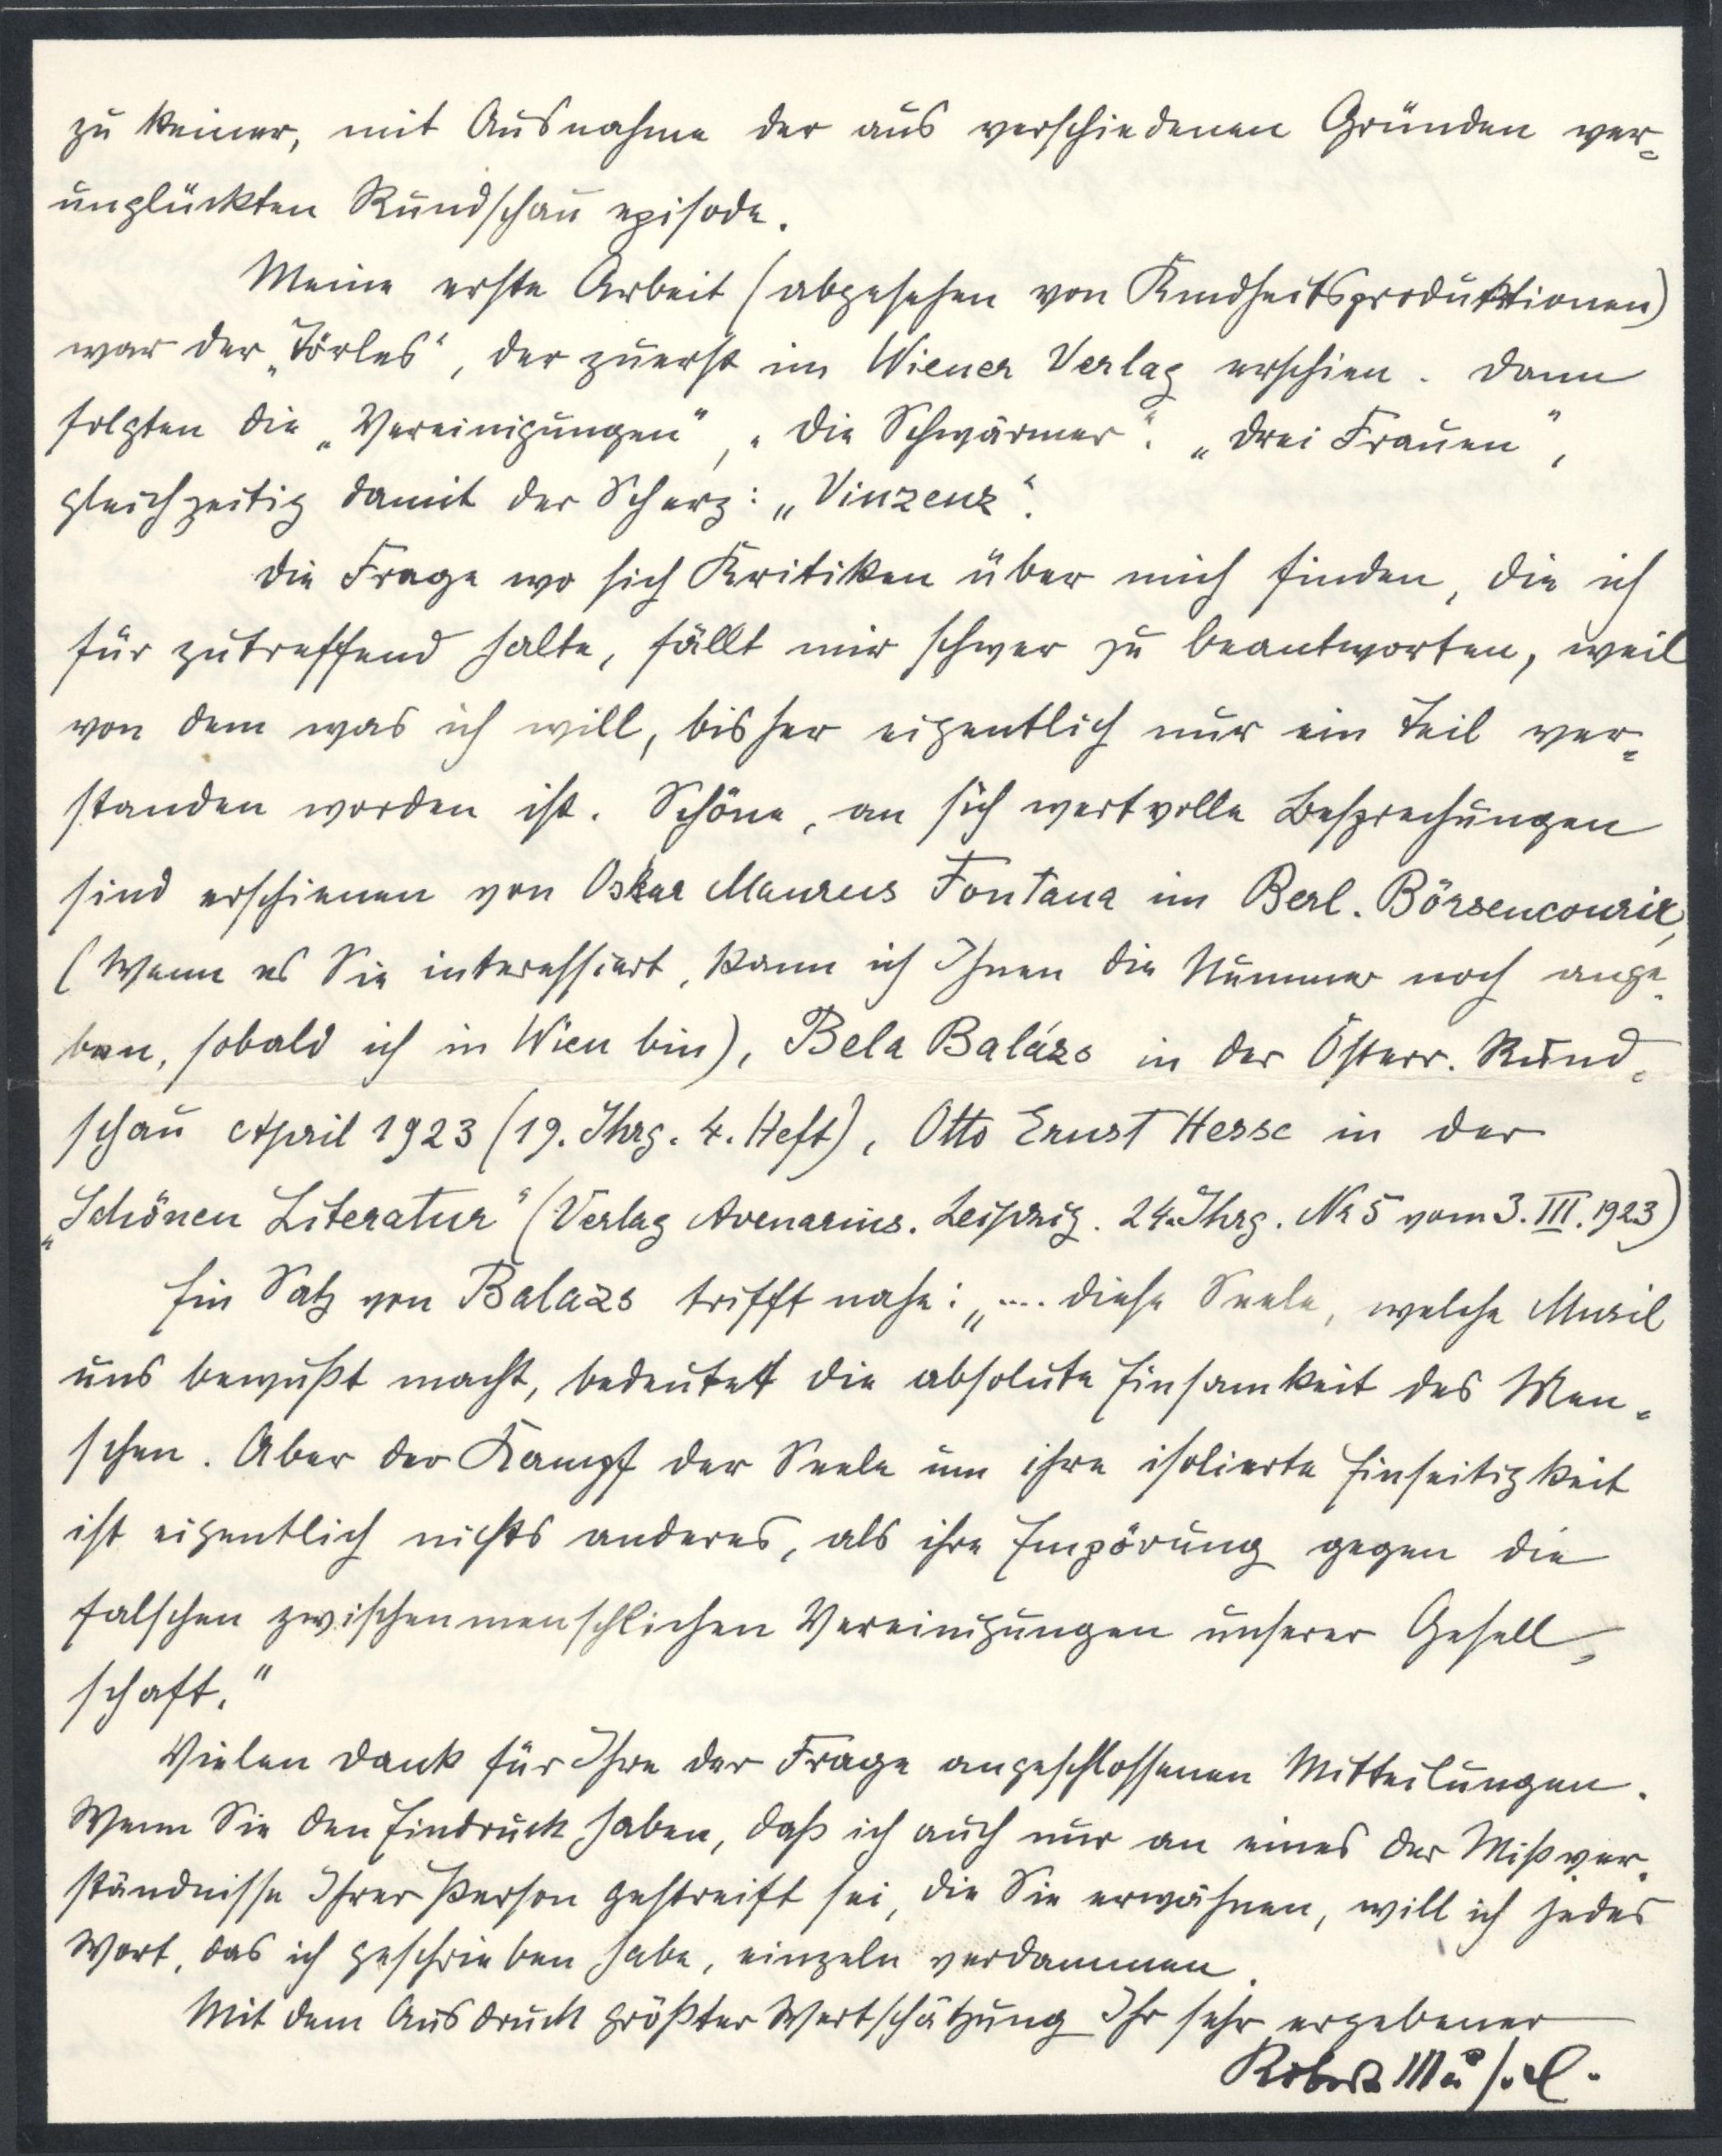 zu keiner, mit Ausnahme der aus verschiedenen Gründen ver-
unglückten Rundschau episode.
Meine erste Arbeit (abgesehen von Kindheitsproduktionen)
war der „Törles“, der zuerst im Wiener Verlag erschien. Dann
folgten die „Vereinigungen“, „Die Schwärmer“. „Drei Frauen“,
gleichzeitig damit der Scherz: „Vinzenz“.
Die Frage wo sich Kritiken über mich finden, die ich
für zutreffend halte, fällt mir schwer zu beantworten, weil
von dem was ich will, bisher eigentlich nur ein Teil ver-
standen worden ist. Schöne, an sich wertvolle Besprechungen
sind erschienen von Oskar Maurus Fontana im Berl. Börsencourir,
(Wenn es Sie interessiert, kann ich Ihnen die Nummer noch ange-
ben, sobald ich in Wien bin), Bela Balázs in der Österr. Rund-
schau April 1923 (19. Jhrg. 4. Heft), Otto Ernst Hesse in der
„Schönen Literatur“ (Verlag Avenarius. Leipzig. 24. Jhrg. Nr 5 vom 3. III. 1923)
Ein Satz von Balazs trifft nahe: „.... diese Seele, welche Musil
uns bewußt macht, bedeutet die absolute Einsamkeit des Men-
schen. Aber der Kampf der Seele um ihre isolierte Einseitigkeit
ist eigentlich nichts anderes, als ihre Empörung gegen die
falschen zwischenmenschlichen Vereinigungen unserer Gesell-
schaft.“
Vielen Dank für Ihre der Frage angeschlossenen Mitteilungen.
Wenn Sie den Eindruck haben, daß ich auch nur an eines der Mißver-
ständnisse Ihrer Person gestreift sei, die Sie erwähnen, will ich jedes
Wort, das ich geschrieben habe, einzeln verdammen.
Mit dem Ausdruck größter Wertschätzung Ihr sehr ergebener
Robert Musil.